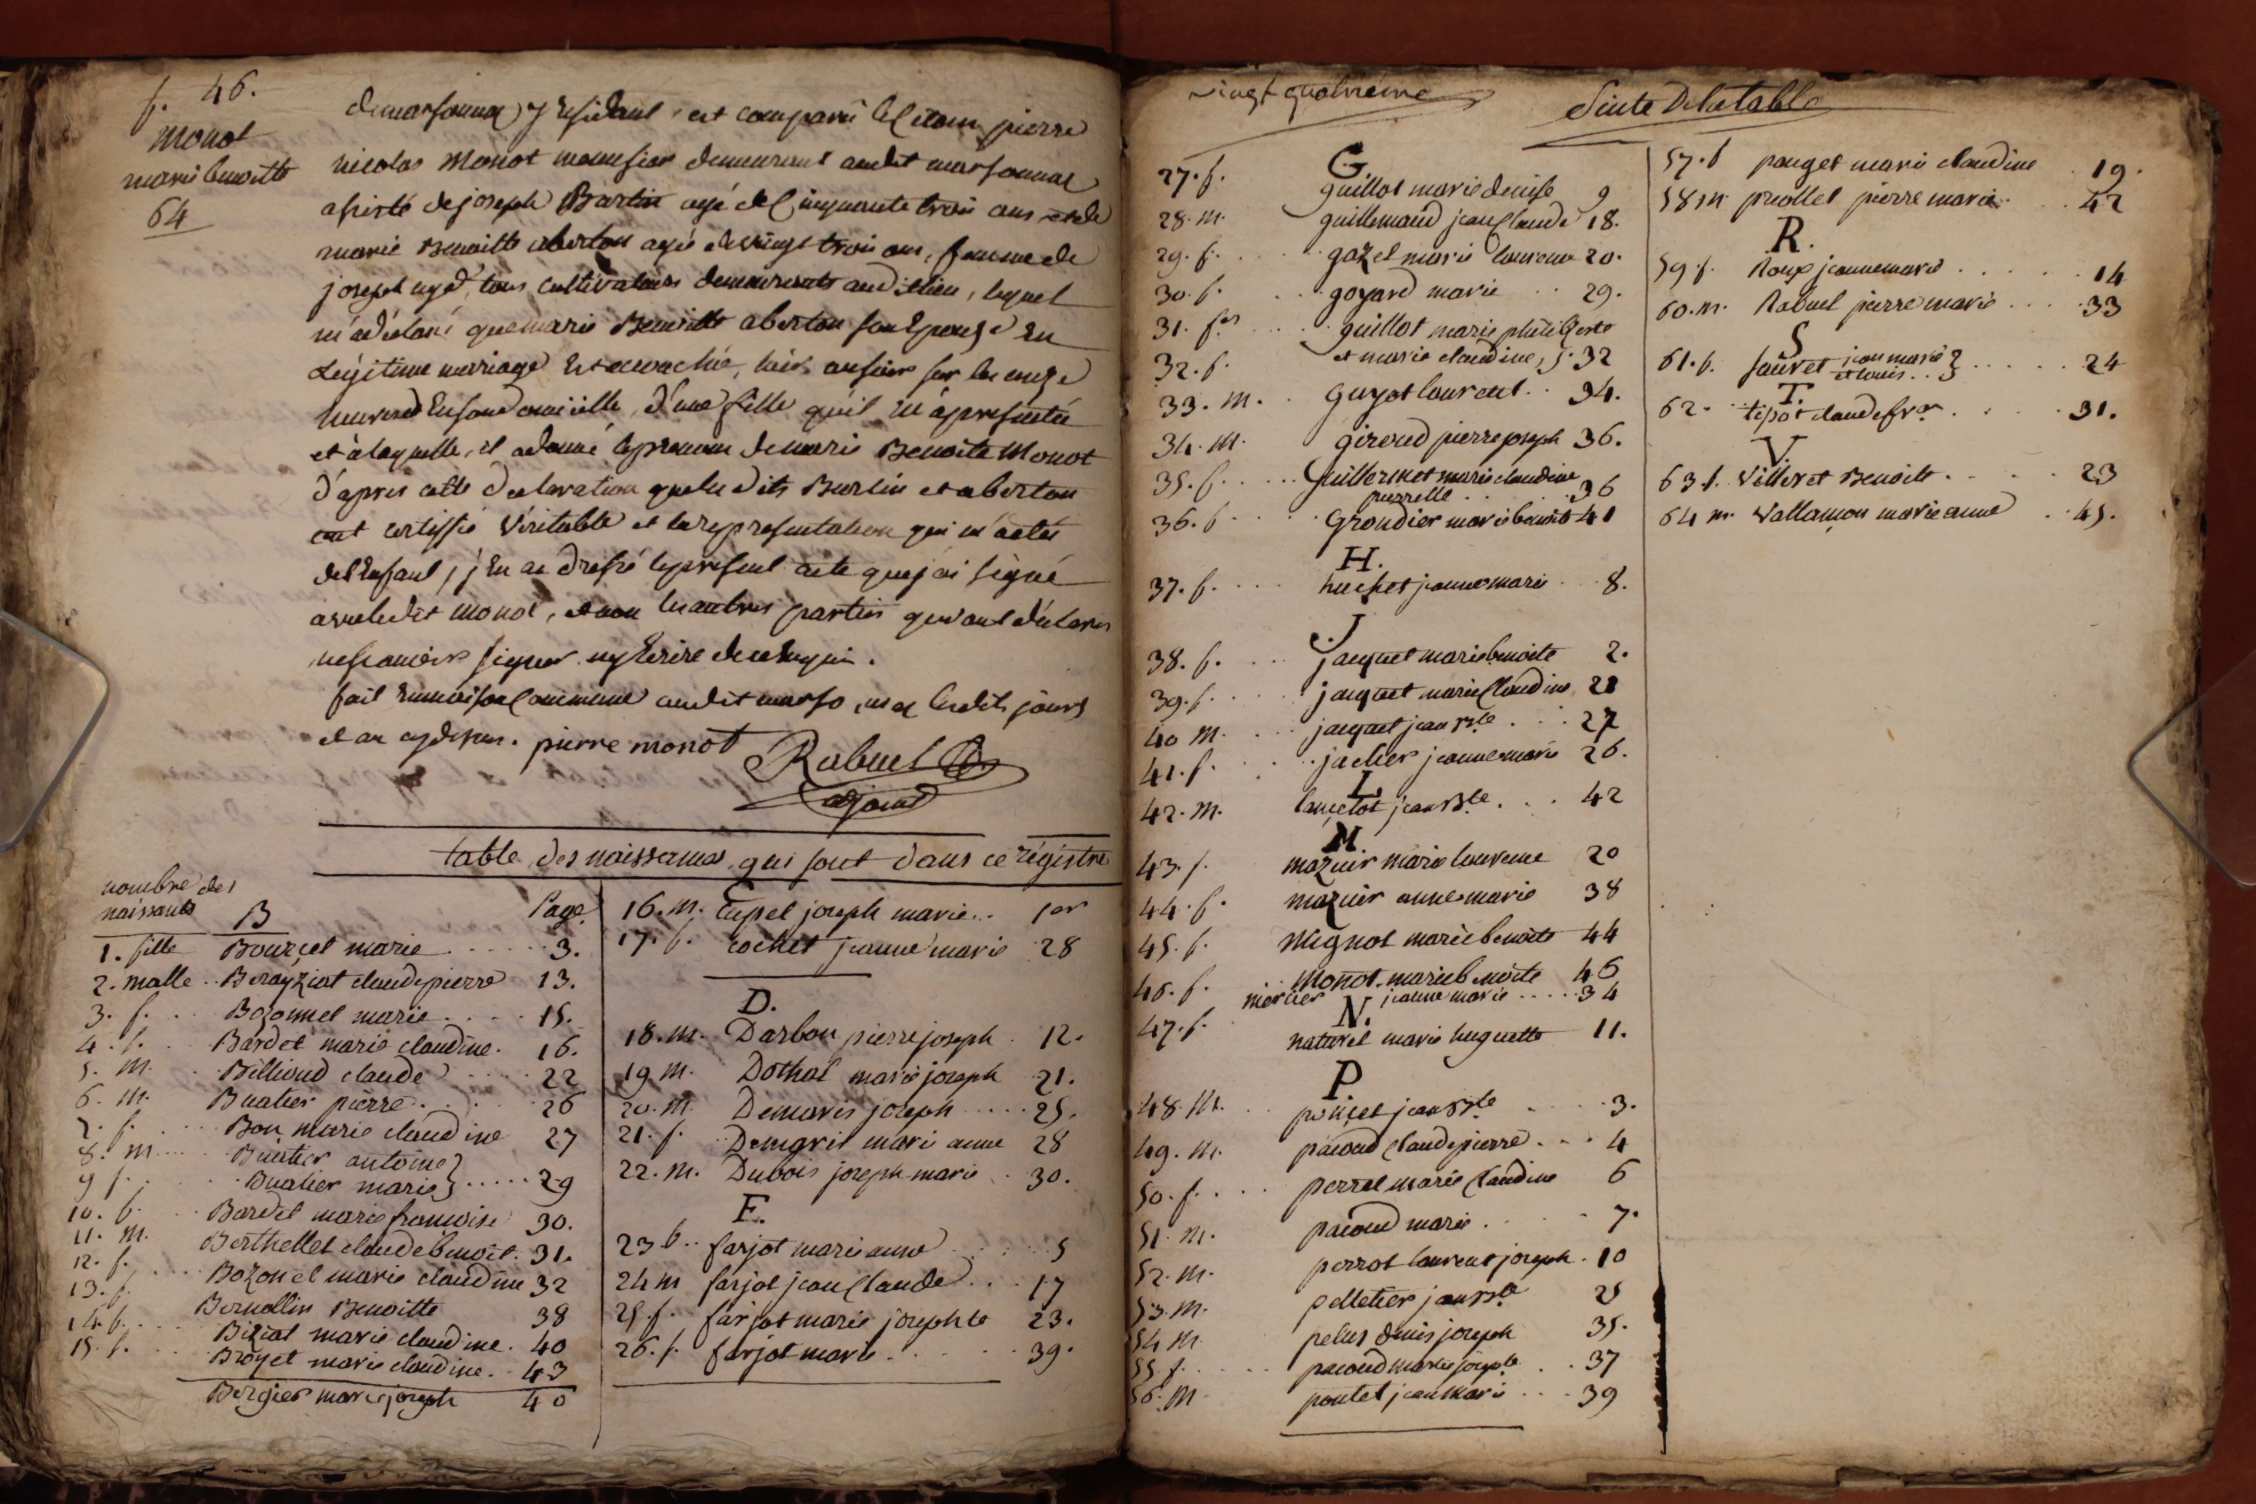 f. 46.
monot
marie benoitte
64
demarsonnax y Residant, est comparu le Citoin pierre
nicolas Monot demeurant audit marsonnax
assisté de joseph Burtin agé de Cinquante trois ans et de
marie Benoitte aberton agée de vingt trois ans, femme de
joseph tous cultivateurs demeurants audit lieu, lequel
m'a déclaré que marie Benoitte aberton son Epouse En
Légitime mariage Est accouchée, hier au soir sur les onze
heures d'une fille qu'il m'a presentée
et à laquelle, il a donné le prenom de marie Benoite Monot
d'apres cette declaration que les dits Burtin et aberton
ont certiffié Véritable et la representation qui m'a été
de l'Enfant, j'En ai dressé le present acte que j'ai signé
avec le dit monot, et non les autres parties qui ont déclaré
ne scavoir signer ny Ecrire de ce Enquis.
fait En maison Commune audit marsonnax lesdits jours
et an cy dessus. pierre monot
Rabuel
adjoint
table des naissances qui sont dans ce régistre
nombre des
naissants B Page
1. fille Bourcet marie 3.
2. malle Berayziat claude pierre 13.
3. f. Bozonnet marie 15.
4. f. Bardet marie claudine. 16.
5. m. Billioud claude 22
6. m. Buatier pierre 26
7. f. Bon marie claudine 27
8. m Buatier antoine }
9 f. Buatier marie } 29
10. f. Bardet marie francoise 30.
11. m. Berthellet claude benoit. 31.
12. f. Bozonet marie claudine 32
13. f. Bernollin Benoitte 38
14. f. Biziat marie claudine. 40
15. f. Broyet marie claudine. 43
Bergier marie joseph 40
16. m. Cupet joseph marie.. 1er
17. f. cochet jeanne marie 28
D.
18. m. Darbon pierre joseph 12.
19 m. Dothal marie joseph 21.
20. m. Demaris joseph 25.
21. f. Demaris marie anne 28
22. m. Dubois joseph marie 30.
F.
23 f. farjot marie anne 5
24 m farjot jean Claude 17
25 f. farjot marie josephte 23.
26. f. farjot marie 39.
vingt quatrieme
Suite De la table
G
27. f. guillot marie denise 9
28. m. guillemaud jean Claude 18.
29. f. gazel marie laurence 20.
30. f. goyard marie 29.
31. f. guillot marie philiberte
32. f. et marie claudine, j. 32
33. m. guyot laurent 34.
34. m. giroud pierre joseph 36.
35. f. guillermot marie claudine
pierrette 36
36. f Grondier marie benoite 41
H.
37. f. huchet jeanne marie 8.
J
38. f. jacquet marie benoite 2.
39. f. jacquet marie Claudine 21
40 m. jacquet jean Bte 27
41. f. jacher jeanne marie 26.
L.
42. m. lancelot jean Bte 42
M
43. f. mazuir marie laurence 20
44. f. mazuir anne marie 38
45. f. Mignot marie benoite 44
46. f. Monot marie benoite 46
mercier jeanne marie 34
N.
47. f. naturel marie huguette 11.
P.
48. m. poncet jean Bte 3.
49. m. pacoud claude pierre 4
50. f. perret marie claudine 6
51. m. pacoud marie 7.
52. m. perrot laurent joseph. 10
53. m. pelletier jean Bte 25
54 m pelus denis joseph 35.
55 f. pacoud marie josephte 37
56. m pontet jean marie 39
57. f pauget marie claudine 19.
58 m prollet pierre marie 42
R.
59. f. Roux jeanne marie 14
60. m. Rabuel pierre marie 33
S
61. f. sauret jean marie }
et louis } 24
T.
62. tipot claude fr 31.
V.
63 f. Villeret Benoite 23
64 m. Vallamon marie anne 45.